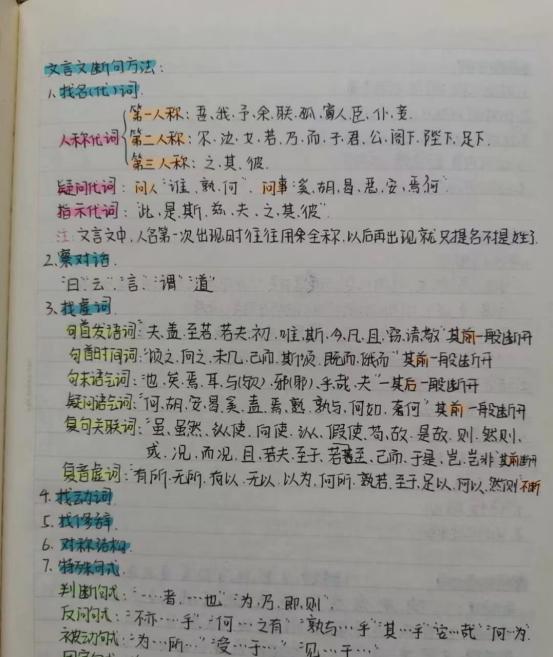 文言文断句方法:
1、找名(代)词.
人称代词
第一人称: 吾、我、予、余、朕、孤、寡人、臣、仆、妾.
第二人称: 尔、汝、女、若、乃、而、子、君、公、阁下、陛下、足下.
第三人称: 之、其、彼.
疑问代词: 问人"谁、孰、何". 问事"奚、胡、曷、恶、安、焉何"
指示代词: "此、是、斯、兹、夫、之、其、彼"
注: 文言文中,人名第一次出现时往往用全称,以后再出现就只提名不提姓了.
2、察对话
"曰""云""言""谓""道"
3、找虚词
句首发语词:"夫、盖、至若、若夫、初、唯、斯、今、凡、且、窃、请、敬"其前一般断开
句首时间词:"顷之、向之、未几、已而、斯须、既而、俄而"其前一般断开
句末语气词:"也、矣、焉、耳、与(欤)、邪(耶)、乎、哉、夫"其后一般断开
疑问语气词:"何、胡、安、曷、奚、盍、焉、孰、孰与、何如、奈何"其前一般断开
复句关联词:"虽、虽然、纵使、向使、纵、假使、苟、故、是故、则、然则、
或、况、而况、且、若夫、至于、若甚至、已而、于是、岂、岂非"其前断开
复音虚词:"有所、无所、有以、无以、以为、何所、孰若、至于、足以、何以、然则"不断
4、找动词
5、找修辞
6、对称结构
7、特殊句式
判断句式:"……者,……也""为、乃、即、则".
反问句式:"不亦…乎""何…之有""孰与…乎""其…乎""岂…哉""何…为
被动句式:"为…所…""受…于…""见…于…"